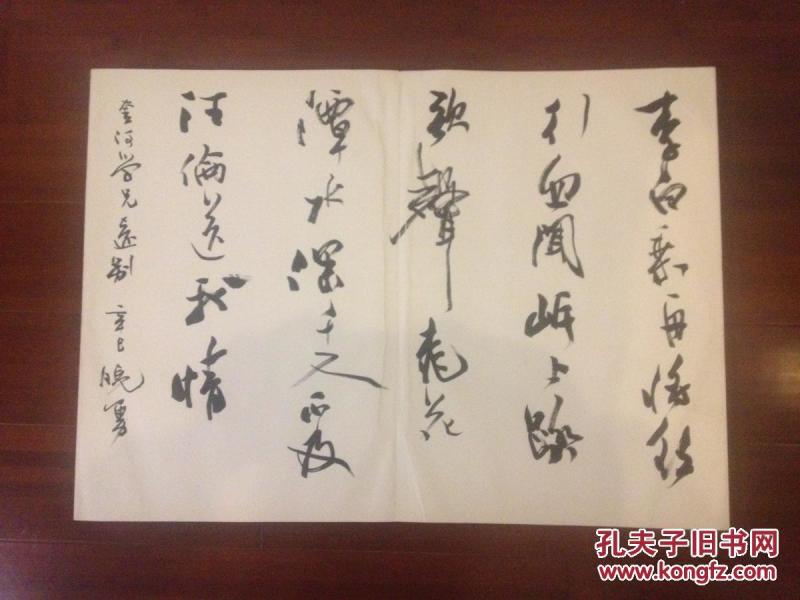 李白乘舟將欲
行忽聞岸上踏
歌聲桃花
潭水深千尺不及
汪倫送我情
河学兄遠别 辛巳 勇
孔夫子旧书网
www.kongfz.com